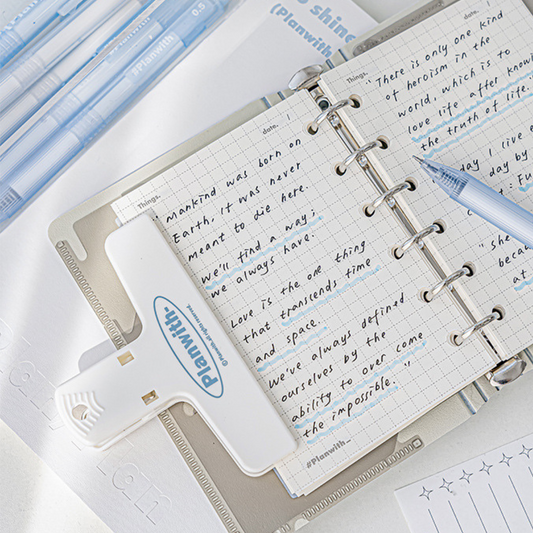 0.5
#Planwith_
o shine
(Planwith
Things.
date. /
Mankind was born on
Earth, it was never
meant to die here.
We'll find a way;
we always have.
Love is the one thing
that transcends time
and space.
We've always defined
ourselves by the
ability to over come
the impossible."
#Planwith_
Planwith-
Things.
date. /
"There is only one kind
of heroism in the
world, which is to
love life after knowi
the truth of life."
day I live e
day by
: Fu
"She
becau
at